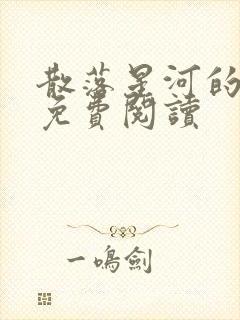 散落星河的
免費閱讀
一鳴劍